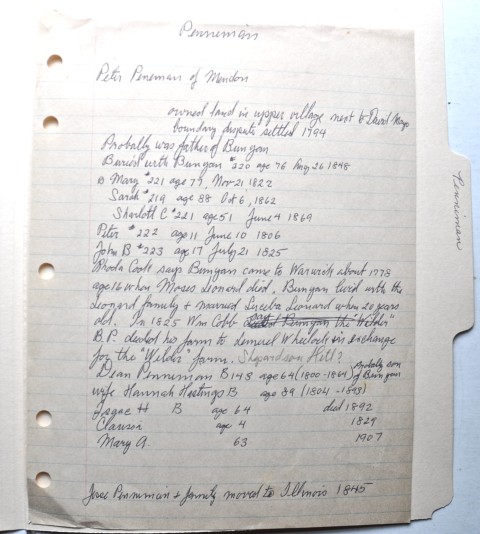 Penneman
Peter Peneman of Mendon
owned land in upper village next to David Mayo
boundary dispute settled 1794
Probably was father of Bunyan
Buried with Bunyan #220 age 76 Aug 26 1848
Mary #221 age 77, Nov 21 1822
Sarah #219 age 88 Oct 6, 1862
Sharlott C #221 age 51 June 4 1869
Peter #222 age 11 June 10 1806
John B #223 age 17 July 21 1825
Rhoda Cook says Bunyan came to Warwick about 1778
age 16 when Moses Leonard died. Bunyan lived with the
Leonard family + married Leonard when 20 years
old. In 1825 Wm Cobb Bunyan the "Wilder"
B.P. deeded his farm to Lemuel Wheelock in exchange
for the "Wilder" farm. Shepardson Hill?
Dean Penneman B148 age 64 (1800-1864) probably son
of Bunyan
wife Hannah Hastings B age 89 (1804-1893)
Isaac H B age 64 died 1892
Clauson age 4 1829
Mary A. 63 1907
Jesse Penneman + family moved to Illinois 1845
Penniman